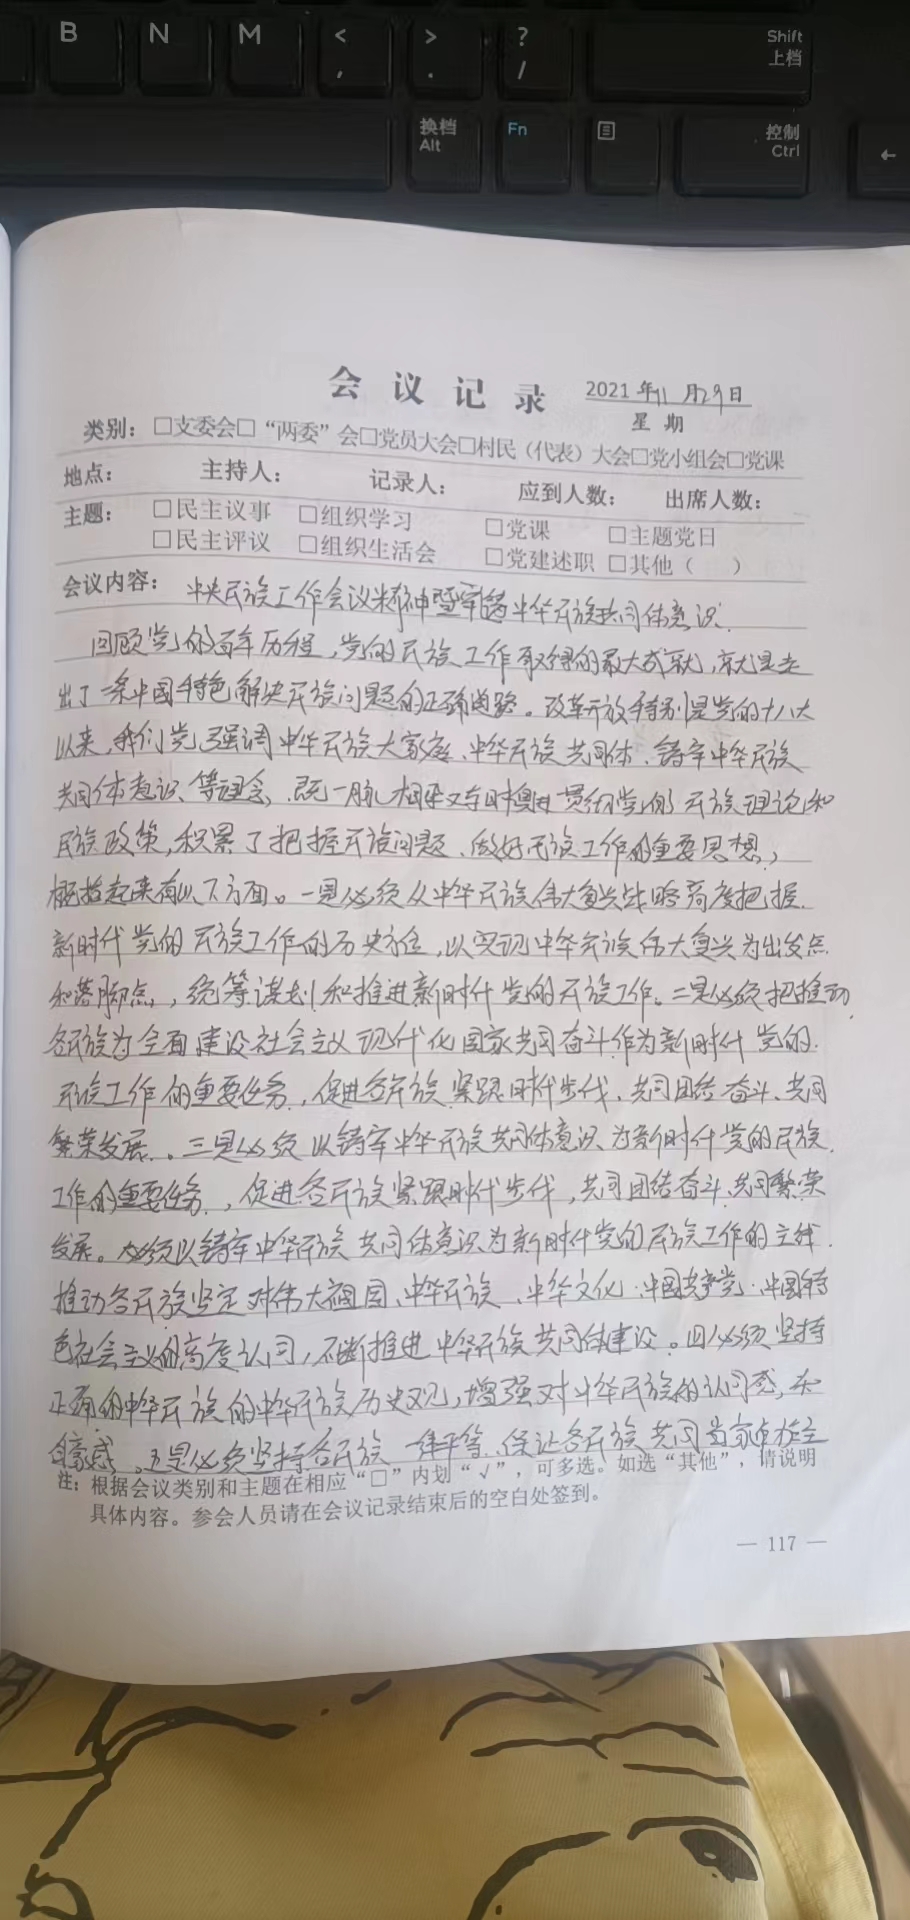 B N M < , > . ? / Shift 上档
换档 Alt Fn 控制 Ctrl ←
会议记录 2021年11月29日
星期
类别：□支委会□“两委”会□党员大会□村民（代表）大会□党小组会□党课
地点： 主持人： 记录人： 应到人数： 出席人数：
主题： □民主议事 □组织学习 □党课 □主题党日
□民主评议 □组织生活会 □党建述职 □其他（ ）
会议内容： 中央民族工作会议精神暨牢铸中华民族共同体意识.
回顾党的百年历程，党的民族工作取得的最大成就，就是走
出了一条中国特色解决民族问题的正确道路。改革开放特别是党的十八大
以来，我们党强调中华民族大家庭、中华民族共同体、铸牢中华民族
共同体意识等理念，既一脉相承又与时俱进贯彻党的民族理论和
民族政策，积累了把握民族问题、做好民族工作的重要思想，
概括起来有以下方面。一是必须从中华民族伟大复兴战略高度把握
新时代党的民族工作的历史方位，以实现中华民族伟大复兴为出发点
和落脚点，统筹谋划和推进新时代党的民族工作。二是必须把推动
各民族为全面建设社会主义现代化国家共同奋斗作为新时代党的
民族工作的重要任务，促进各民族紧跟时代步伐，共同团结奋斗、共同
繁荣发展。三是必须以铸牢中华民族共同体意识为新时代党的民族
工作的重要任务，促进各民族紧跟时代步伐，共同团结奋斗、共同繁荣
发展。必须以铸牢中华民族共同体意识为新时代党的民族工作的主线
推动各民族坚定对伟大祖国、中华民族、中华文化、中国共产党、中国特
色社会主义的高度认同，不断推进中华民族共同体建设。四必须坚持
正确的中华民族的中华民族历史观，增强对中华民族的认同感，和
自豪感。五是必须坚持各民族一律平等、保证各民族共同当家
注：根据会议类别和主题在相应“□”内划“√”，可多选。如选“其他”，请说明
具体内容。参会人员请在会议记录结束后的空白处签到。
— 117 —